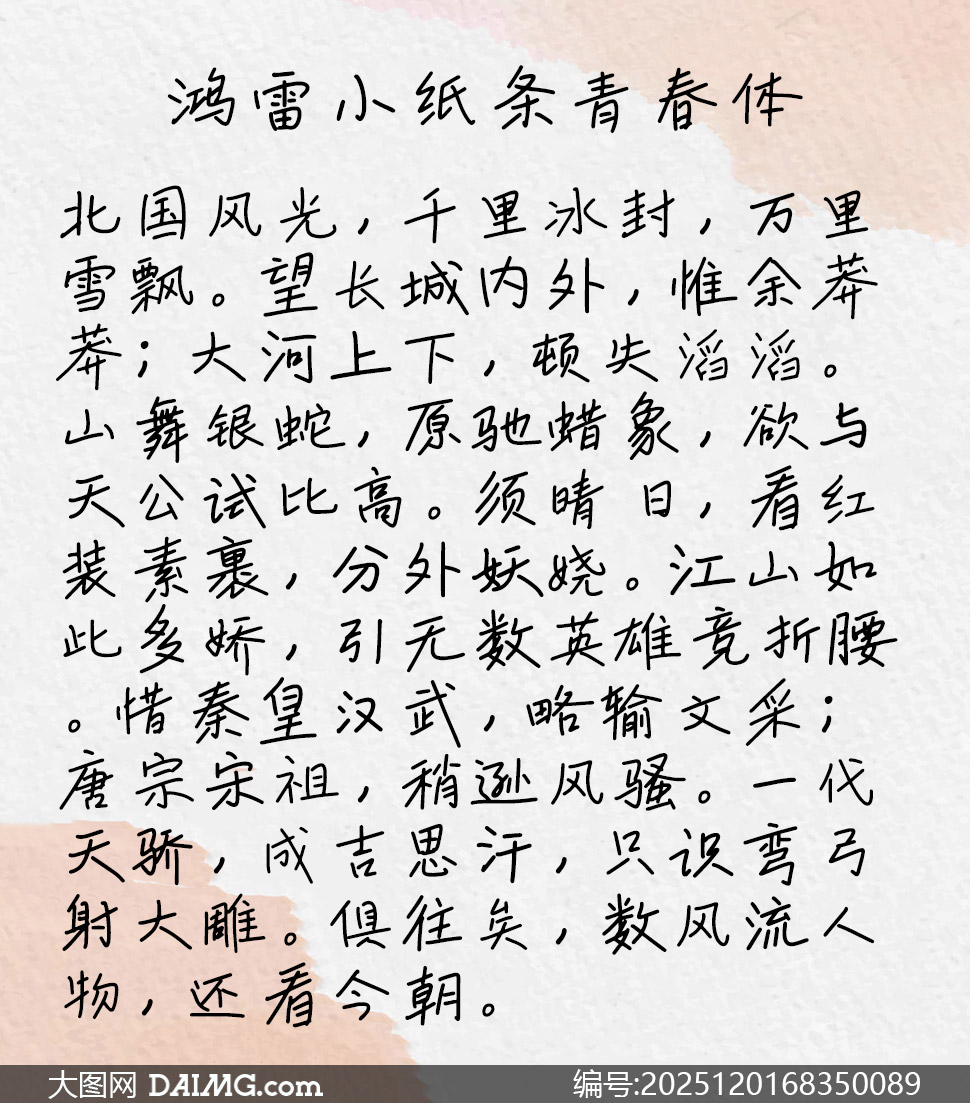 鸿雷小纸条青春体
北国风光，千里冰封，万里
雪飘。望长城内外，惟余莽
莽；大河上下，顿失滔滔。
山舞银蛇，原驰蜡象，欲与
天公试比高。须晴日，看红
装素裹，分外妖娆。江山如
此多娇，引无数英雄竞折腰
。惜秦皇汉武，略输文采；
唐宗宋祖，稍逊风骚。一代
天骄，成吉思汗，只识弯弓
射大雕。俱往矣，数风流人
物，还看今朝。
大图网 DAIMG.com
编号:2025120168350089